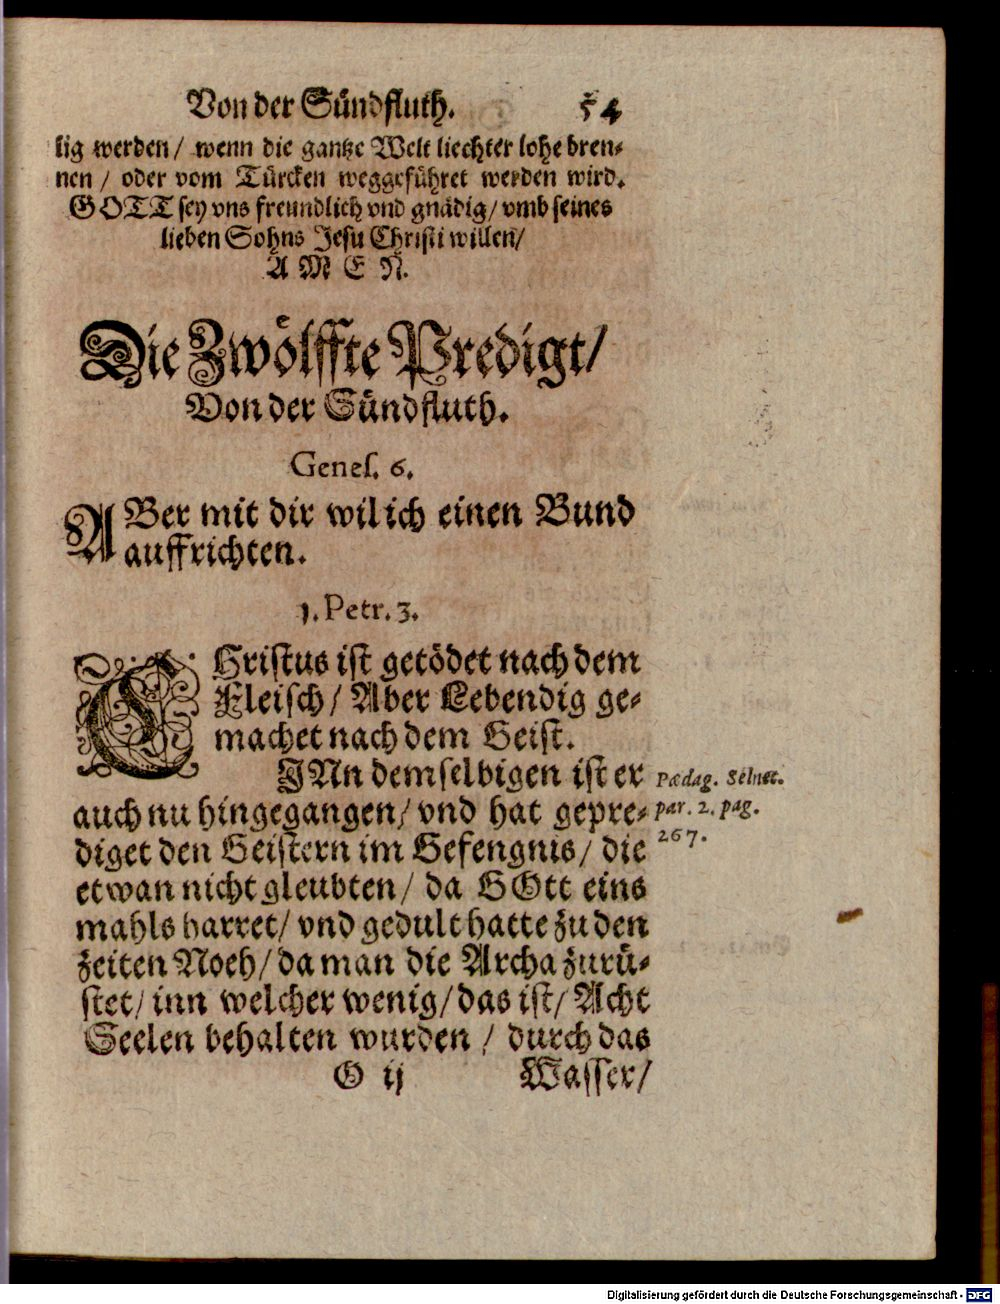 Von der Sündfluth. 54
lig werden / wenn die gantze Welt liechter lohe bren-
nen / oder vom Türcken weggeführet werden wird.
GOTT sey vns freundlich vnd gnädig / vmb seines
lieben Sohns Jesu Christi willen /
A M E N.
Die Zwölffte Predigt /
Von der Sündfluth.
Genes. 6.
ABer mit dir wil ich einen Bund
auffrichten.
1. Petr. 3.
CHristus ist getödet nach dem
Fleisch / Aber Lebendig ge-
machet nach dem Geist.
JNn demselbigen ist er
auch nu hingegangen / vnd hat gepre-
diget den Geistern im Gefengnis / die
etwan nicht gleubten / da GOtt eins
mahls harret / vnd gedult hatte zu den
zeiten Noeh / da man die Archa zurü-
stet / inn welcher wenig / das ist / Acht
Seelen behalten wurden / durch das
Pædag. Selnec.
par. 2. pag.
267.
G ij Wasser /
Digitalisierung gefördert durch die Deutsche Forschungsgemeinschaft - DFG